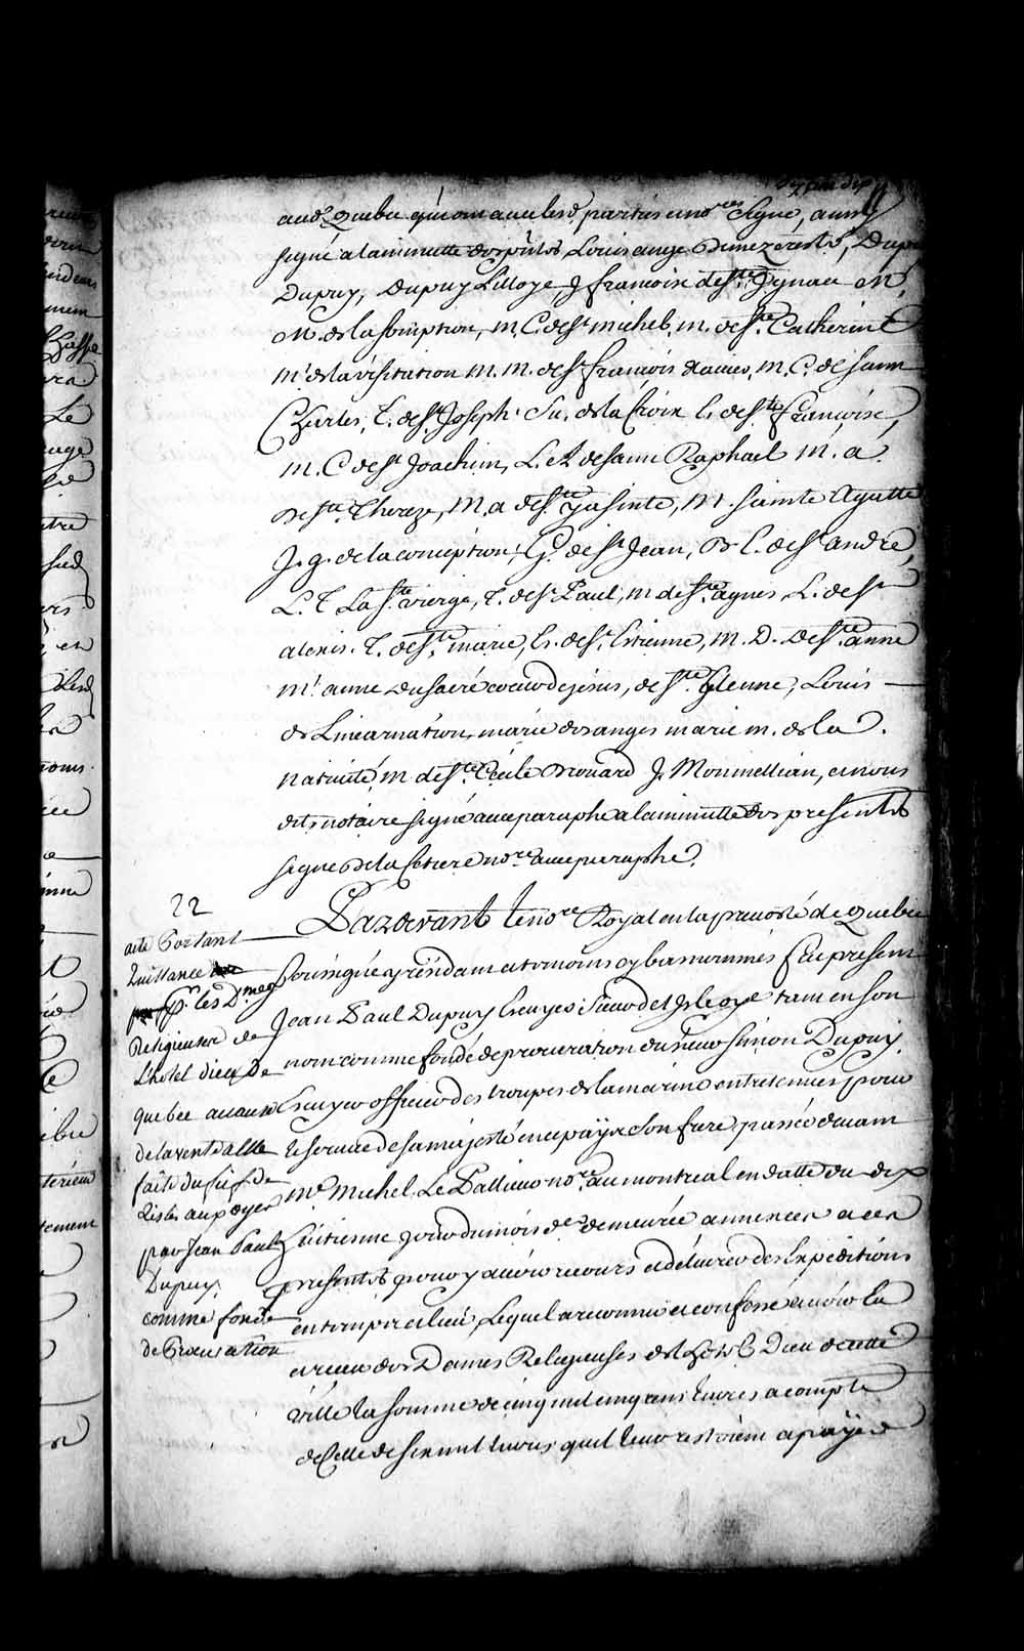 audt Quebec qui ont avec lesd parties and nores Signé, aussy
signé a la minutte des pñtes Louis ange
Dupuy, Dupuy Lilloye, J francoise de ste Ignace M.
M. de la somption, m. C. de st michel, m. de ste Catherine
m. de la visitation m. m. de st francois xavier, m. C. de saint
Charles, T. de st Joseph. Su. de la Croix C. de ste francoise,
m. C de st Joachim, L. et de saint Raphael m. a.
De ste Thereze, M. a de ste Yasinte, M. sainte Agatte
J. g. de la conception, G. de st Jean, B C. de st andré,
L. T La ste vierge, T. de st Paul, m de ste agnes, L. de st
alexis. T. de ste marie, C. de st Estienne, m. D. de ste anne
m. anne du sacré coeur de jesus, de ste helenne, Louis
de Lincarnation, marie des anges marie m. de la
nativité, m de ste Cécile Drouard J. Monmellian, et nous
dits notaire signé avec paraphe a la minutte des presentes
signé De la Cetiere nore avec paraphe.
22
Pardevant le nore Royal en la prevosté de Quebec
acte Portant
quittance
par les Dmes
Religieuses de
L'hotel dieu De
quebec acause
de la vente a Elle
faite du fief de
Lisle aupoyes
par Jean Paul
Dupuy.
comme fondé
de Procuration
soussigné y residant et temoins cy bas nommés fut present
Jean Paul Dupuy Escuyer Sieur de Lisleoye tant en son
nom comme fondé de procuration du sieur Simon Dupuy.
Escuyer officier des troupes de la marine entretenues pour
le service de sa majesté en ce païs son frere passée devant
Me Michel Le Pallieur nore au montreal en datte du dix
huitienne jour du mois de demeurée annexée a ces
presentes pour y avoir recours et délivrer des Expeditions
en temps et lieu, Lequel a reconnu et confessé avoir Eu
et receu des Dames Religieuses de L'hotel Dieu de cette
ville la somme de cinq mil cinq cens livres acompte
de Celle de six mil livres quil leur restoient a payer